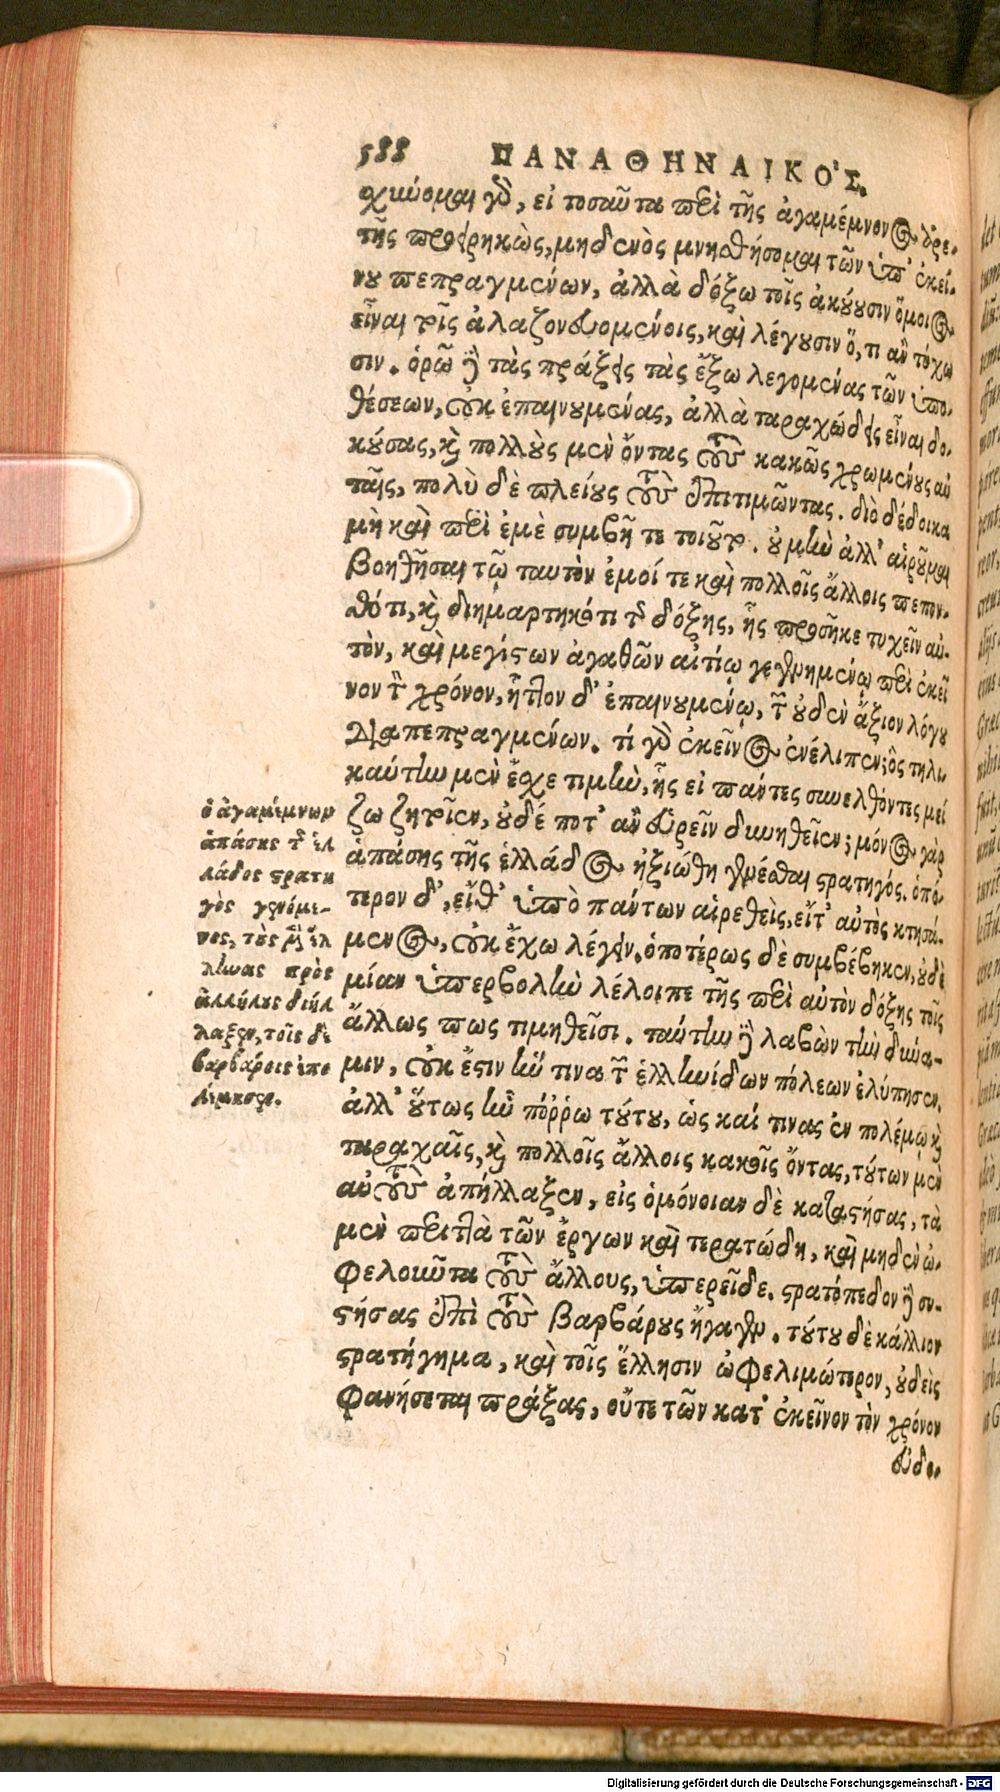 588 ΠΑΝΑΘΗΝΑΙΚΟ'Σ.
χύνομαι γὰρ, εἰ τοσαῦτα περὶ τῆς ἀγαμέμνονος ἀρε-
τῆς προειρηκὼς, μηδενὸς μνησθήσομαι τῶν ὑπ' ἐκεί-
νου πεπραγμένων, ἀλλὰ δόξω τοῖς ἀκούουσιν ὅμοιος
εἶναι τοῖς ἀλαζονευομένοις, καὶ λέγουσιν ὅ, τι ἂν τύχω
σιν. ὁρῶ δὲ τὰς πράξεις τὰς ἔξω λεγομένας τῶν ὑπο-
θέσεων, οὐκ ἐπαινουμένας, ἀλλὰ ταραχώδεις εἶναι δο-
κούσας, καὶ πολλοὺς μὲν ὄντας τοὺς κακῶς χρωμένους αὐ
ταῖς, πολὺ δὲ πλείους τοὺς ἐπιτιμῶντας. διὸ δέδοικα
μὴ καὶ περὶ ἐμὲ συμβῇ τι τοιοῦτον. οὐ μὴν ἀλλ' αἱροῦμαι
βοηθῆσαι τῷ ταυτὸν ἐμοί τε καὶ πολλοῖς ἄλλοις πεπον-
θότι, καὶ διημαρτηκότι τῆς δόξης, ἧς προσῆκε τυχεῖν αὐ-
τὸν, καὶ μεγίστων ἀγαθῶν αἰτίῳ γεγενημένῳ περὶ ἐκεῖ
νον τὸν χρόνον, ἧττον δ' ἐπαινουμένῳ, τῶν οὐδὲν ἄξιον λόγου
διαπεπραγμένων. τί γὰρ ἐκεῖνος ἐνέλιπεν; ὃς τηλι-
καύτην μὲν ἔσχε τιμὴν, ἧς εἰ πάντες συνελθόντες μεί
ζω ζητοῖεν, οὐδέ ποτ' ἂν εὑρεῖν δυνηθεῖεν; μόνος γὰρ
ἁπάσης τῆς ἑλλάδος ἠξιώθη γενέσθαι στρατηγός. ὁπό-
τερον δ', εἴθ' ὑπὸ πάντων αἱρεθεὶς, εἴτ' αὐτὸς κτησά-
μενος, οὐκ ἔχω λέγειν. ὁποτέρως δὲ συμβέβηκεν, οὐδε
μίαν ὑπερβολὴν λέλοιπε τῆς περὶ αὐτὸν δόξης τοῖς
ἄλλως πως τιμηθεῖσι. ταύτην δὲ λαβὼν τὴν δύνα-
μιν, οὐκ ἔστιν ἥν τινα τῶν ἑλληνίδων πόλεων ἐλύπησεν,
ἀλλ' οὕτως ἦν πόρρω τούτου, ὡς καί τινας ἐν πολέμῳ καὶ
ταραχαῖς, καὶ πολλοῖς ἄλλοις κακοῖς ὄντας, τούτων μὲν
αὐτοὺς ἀπήλλαξεν, εἰς ὁμόνοιαν δὲ καταστήσας, τὰ
μὲν περιττὰ τῶν ἔργων καὶ τερατώδη, καὶ μηδὲν ὠ-
φελοῦντα τοὺς ἄλλους, ὑπερεῖδε. στρατόπεδον δὲ συ-
στήσας ἐπὶ τοὺς βαρβάρους ἤγαγεν. τούτου δὲ κάλλιον
στρατήγημα, καὶ τοῖς ἕλλησιν ὠφελιμώτερον, οὐδεὶς
φανήσεται πράξας, οὔτε τῶν κατ' ἐκεῖνον τὸν χρόνον
εὐδο-
ὁ ἀγαμέμνων
ἁπάσης τῆς ἑλ
λάδος στρατη
γὸς γενόμε-
νος, τοὺς μὲν ἕλ
ληνας πρὸς
ἀλλήλους διήλ
λαξεν, τοῖς δὲ
βαρβάροις ἐπο
λέμησεν.
Digitalisierung gefördert durch die Deutsche Forschungsgemeinschaft - DFG